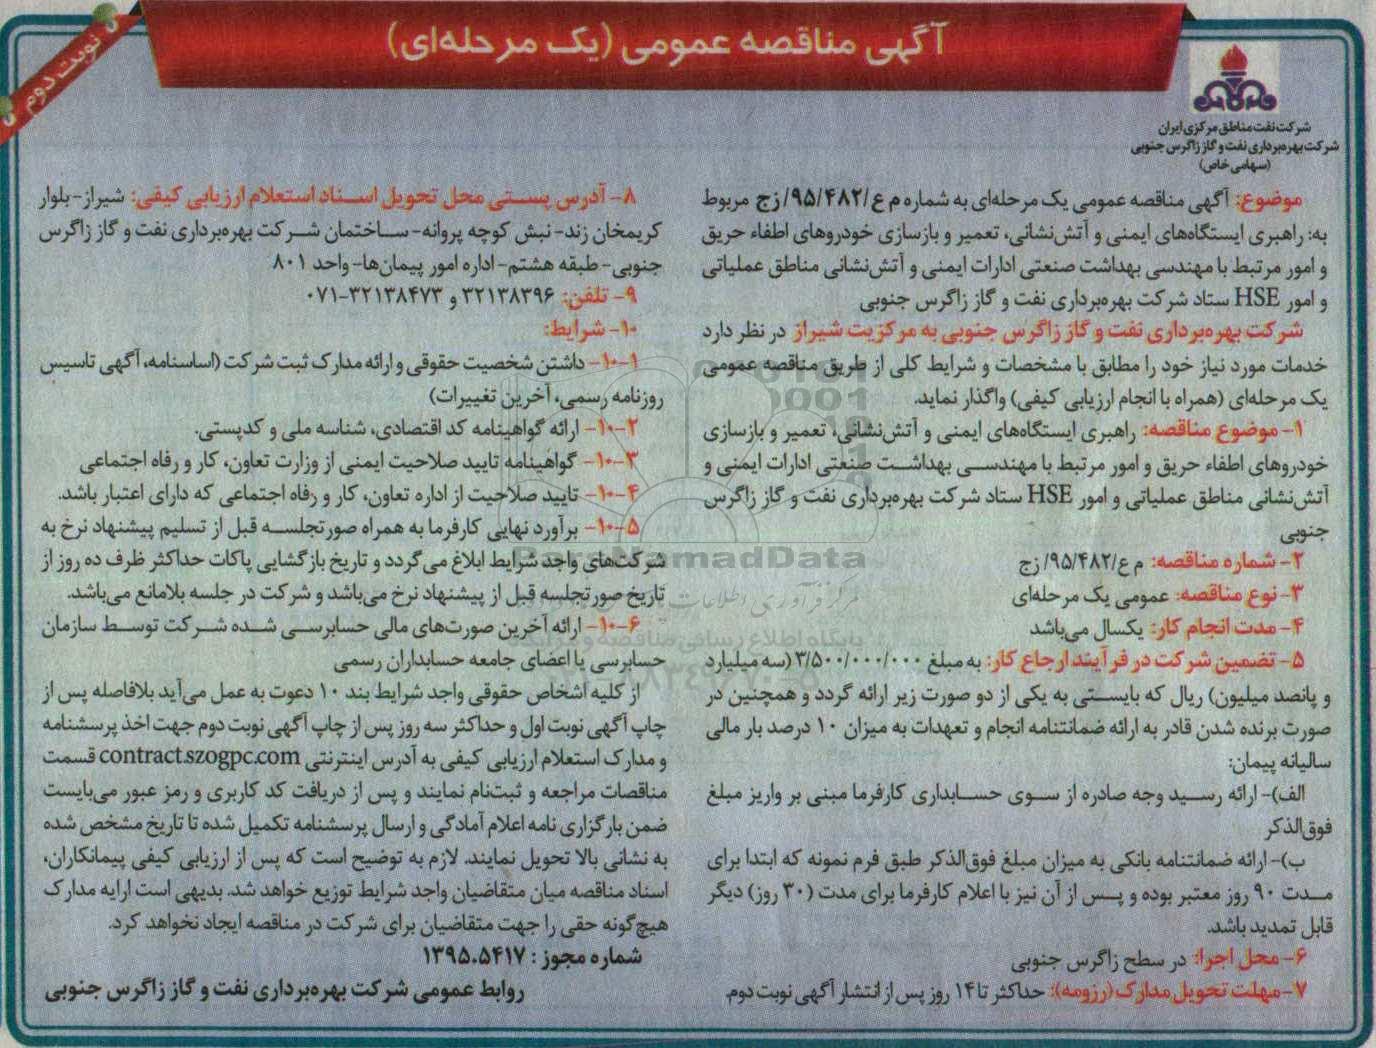 آگهی مناقصه عمومی (یک مرحله‌ای)
نوبت دوم
شرکت نفت مناطق مرکزی ایران
شرکت بهره‌برداری نفت و گاز زاگرس جنوبی
(سهامی خاص)
موضوع: آگهی مناقصه عمومی یک مرحله‌ای به شماره م ع/۹۵/۴۸۲/ زج مربوط
به: راهبری ایستگاه‌های ایمنی و آتش‌نشانی، تعمیر و بازسازی خودروهای اطفاء حریق
و امور مرتبط با مهندسی بهداشت صنعتی ادارات ایمنی و آتش‌نشانی مناطق عملیاتی
و امور HSE ستاد شرکت بهره‌برداری نفت و گاز زاگرس جنوبی
شرکت بهره‌برداری نفت و گاز زاگرس جنوبی به مرکزیت شیراز در نظر دارد
خدمات مورد نیاز خود را مطابق با مشخصات و شرایط کلی از طریق مناقصه عمومی
یک مرحله‌ای (همراه با انجام ارزیابی کیفی) واگذار نماید.
۱- موضوع مناقصه: راهبری ایستگاه‌های ایمنی و آتش‌نشانی، تعمیر و بازسازی
خودروهای اطفاء حریق و امور مرتبط با مهندسی بهداشت صنعتی ادارات ایمنی و
آتش‌نشانی مناطق عملیاتی و امور HSE ستاد شرکت بهره‌برداری نفت و گاز زاگرس
جنوبی
۲- شماره مناقصه: م ع/۹۵/۴۸۲/ زج
۳- نوع مناقصه: عمومی یک مرحله‌ای
۴- مدت انجام کار: یکسال می‌باشد
۵- تضمین شرکت در فرآیند ارجاع کار: به مبلغ ۳/۵۰۰/۰۰۰/۰۰۰ (سه میلیارد
و پانصد میلیون) ریال که بایستی به یکی از دو صورت زیر ارائه گردد و همچنین در
صورت برنده شدن قادر به ارائه ضمانتنامه انجام و تعهدات به میزان ۱۰ درصد بار مالی
سالیانه پیمان:
الف)- ارائه رسید وجه صادره از سوی حسابداری کارفرما مبنی بر واریز مبلغ
فوق‌الذکر
ب)- ارائه ضمانتنامه بانکی به میزان مبلغ فوق‌الذکر طبق فرم نمونه که ابتدا برای
مدت ۹۰ روز معتبر بوده و پس از آن نیز با اعلام کارفرما برای مدت (۳۰ روز) دیگر
قابل تمدید باشد.
۶- محل اجرا: در سطح زاگرس جنوبی
۷- مهلت تحویل مدارک (رزومه): حداکثر تا ۱۴ روز پس از انتشار آگهی نوبت دوم
۸- آدرس پستی محل تحویل اسناد استعلام ارزیابی کیفی: شیراز- بلوار
کریمخان زند- نبش کوچه پروانه- ساختمان شرکت بهره‌برداری نفت و گاز زاگرس
جنوبی- طبقه هشتم- اداره امور پیمان‌ها- واحد ۸۰۱
۹- تلفن: ۳۲۱۳۸۳۹۶ و ۳۲۱۳۸۴۷۳-۰۷۱
۱۰- شرایط:
۱-۱۰- داشتن شخصیت حقوقی و ارائه مدارک ثبت شرکت (اساسنامه، آگهی تاسیس
روزنامه رسمی، آخرین تغییرات)
۲-۱۰- ارائه گواهینامه کد اقتصادی، شناسه ملی و کدپستی.
۳-۱۰- گواهینامه تایید صلاحیت ایمنی از وزارت تعاون، کار و رفاه اجتماعی
۴-۱۰- تایید صلاحیت از اداره تعاون، کار و رفاه اجتماعی که دارای اعتبار باشد.
۵-۱۰- برآورد نهایی کارفرما به همراه صورتجلسه قبل از تسلیم پیشنهاد نرخ به
شرکت‌های واجد شرایط ابلاغ می‌گردد و تاریخ بازگشایی پاکات حداکثر ظرف ده روز از
تاریخ صورتجلسه قبل از پیشنهاد نرخ می‌باشد و شرکت در جلسه بلامانع می‌باشد.
۶-۱۰- ارائه آخرین صورت‌های مالی حسابرسی شده شرکت توسط سازمان
حسابرسی یا اعضای جامعه حسابداران رسمی
از کلیه اشخاص حقوقی واجد شرایط بند ۱۰ دعوت به عمل می‌آید بلافاصله پس از
چاپ آگهی نوبت اول و حداکثر سه روز پس از چاپ آگهی نوبت دوم جهت اخذ پرسشنامه
و مدارک استعلام ارزیابی کیفی به آدرس اینترنتی contract.szogpc.com قسمت
مناقصات مراجعه و ثبت‌نام نمایند و پس از دریافت کد کاربری و رمز عبور می‌بایست
ضمن بارگزاری نامه اعلام آمادگی و ارسال پرسشنامه تکمیل شده تا تاریخ مشخص شده
به نشانی بالا تحویل نمایند. لازم به توضیح است که پس از ارزیابی کیفی پیمانکاران،
اسناد مناقصه میان متقاضیان واجد شرایط توزیع خواهد شد. بدیهی است ارایه مدارک
هیچ‌گونه حقی را جهت متقاضیان برای شرکت در مناقصه ایجاد نخواهد کرد.
شماره مجوز : ۱۳۹۵.۵۴۱۷
روابط عمومی شرکت بهره‌برداری نفت و گاز زاگرس جنوبی
ParsNamadData